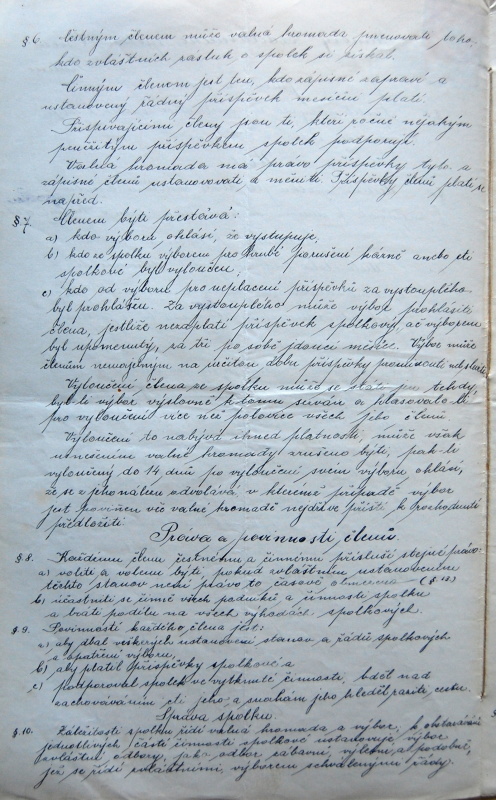 § 6. Čestným členem může valná hromada jmenovati toho,
kdo zvláštních zásluh o spolek si získal.
Činným členem jest ten, kdo zápisné zapraví a
ustanovený řádný příspěvek měsíční platí.
Přispívajícími členy jsou ti, kteří ročně nějakým
penězitým příspěvkem spolek podporují.
Valná hromada má právo příspěvky tyto a
zápisné členů ustanovovati a měniti. Příspěvky členů platí se
napřed.
§ 7. Členem býti přestává:
a) kdo výboru ohlásí, že vystupuje,
b) kdo ze spolku výborem pro hrubé porušení kázně anebo cti
spolkové byl vyloučen,
c) kdo od výboru pro neplacení příspěvků za vystouplého
byl prohlášen. Za vystouplého může výbor prohlásiti
člena, jestliže nezaplatí příspěvek spolkový, ač výborem
byl upomenutý, za tři po sobě jdoucí měsíce. Výbor může
členům nemajetným na určitou dobu příspěvky prominouti
Vyloučení člena ze spolku může se státi jen tehdy
byl-li výbor výslovně k tomu svolán a hlasovalo-li
pro vyloučení více než polovice všech jeho členů
Vyloučení to nabývá ihned platnosti, může však
usnesením valné hromady zrušeno býti, pak-li
vyloučený do 14 dnů po vyloučení svém výboru ohlásí,
že se z jeho nálezu odvolává, v kterémž případě výbor
jest povinen věc valné hromadě nejdříve příští k rozhodnutí
předložiti.
Práva a povinnosti členů.
§ 8. Každému členu čestnému a činnému přísluší stejné právo:
a) voliti a volenu býti pokud zvláštním ustanovením
těchto stanov není právo to časově obmezeno (§ 18)
b) účastniti se činně všech podniků a činnosti spolku
a bráti podílu na všech výhodách spolkových.
§ 9. Povinností každého člena jest:
a) aby dbal veškerých ustanovení stanov a řádů spolkových
a opatření výboru,
b) aby platil příspěvky spolkové a
c) podporoval spolek ve vytknuté činnosti, bděl nad
zachováváním cti jeho a snahám jeho hleděl raziti cestu.
Správa spolku.
§ 10. Záležitosti spolku řídí valná hromada a výbor. K obstarávání
jednotlivých částí činnosti spolkové ustanovuje výbor
zvláštní odbory, jako odbor zábavní, výletní a podobné,
jež se řídí zvláštními, výborem schválenými řády.